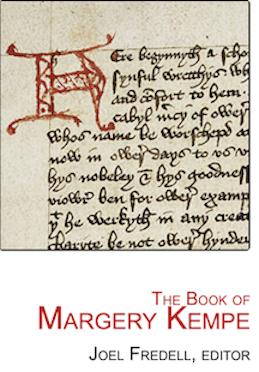 HEre begynnyth a scho
synful wrecchys wh
and cõfort to hem.
cabyl mcy of ower
whos name be worschepd a
now in ower days to us v
hys nobeley & hys goodness
viowr ben for ower examp
þt he werkyth in any crea
karyte be not ower hynder
The Book of
Margery Kempe
Joel Fredell, editor